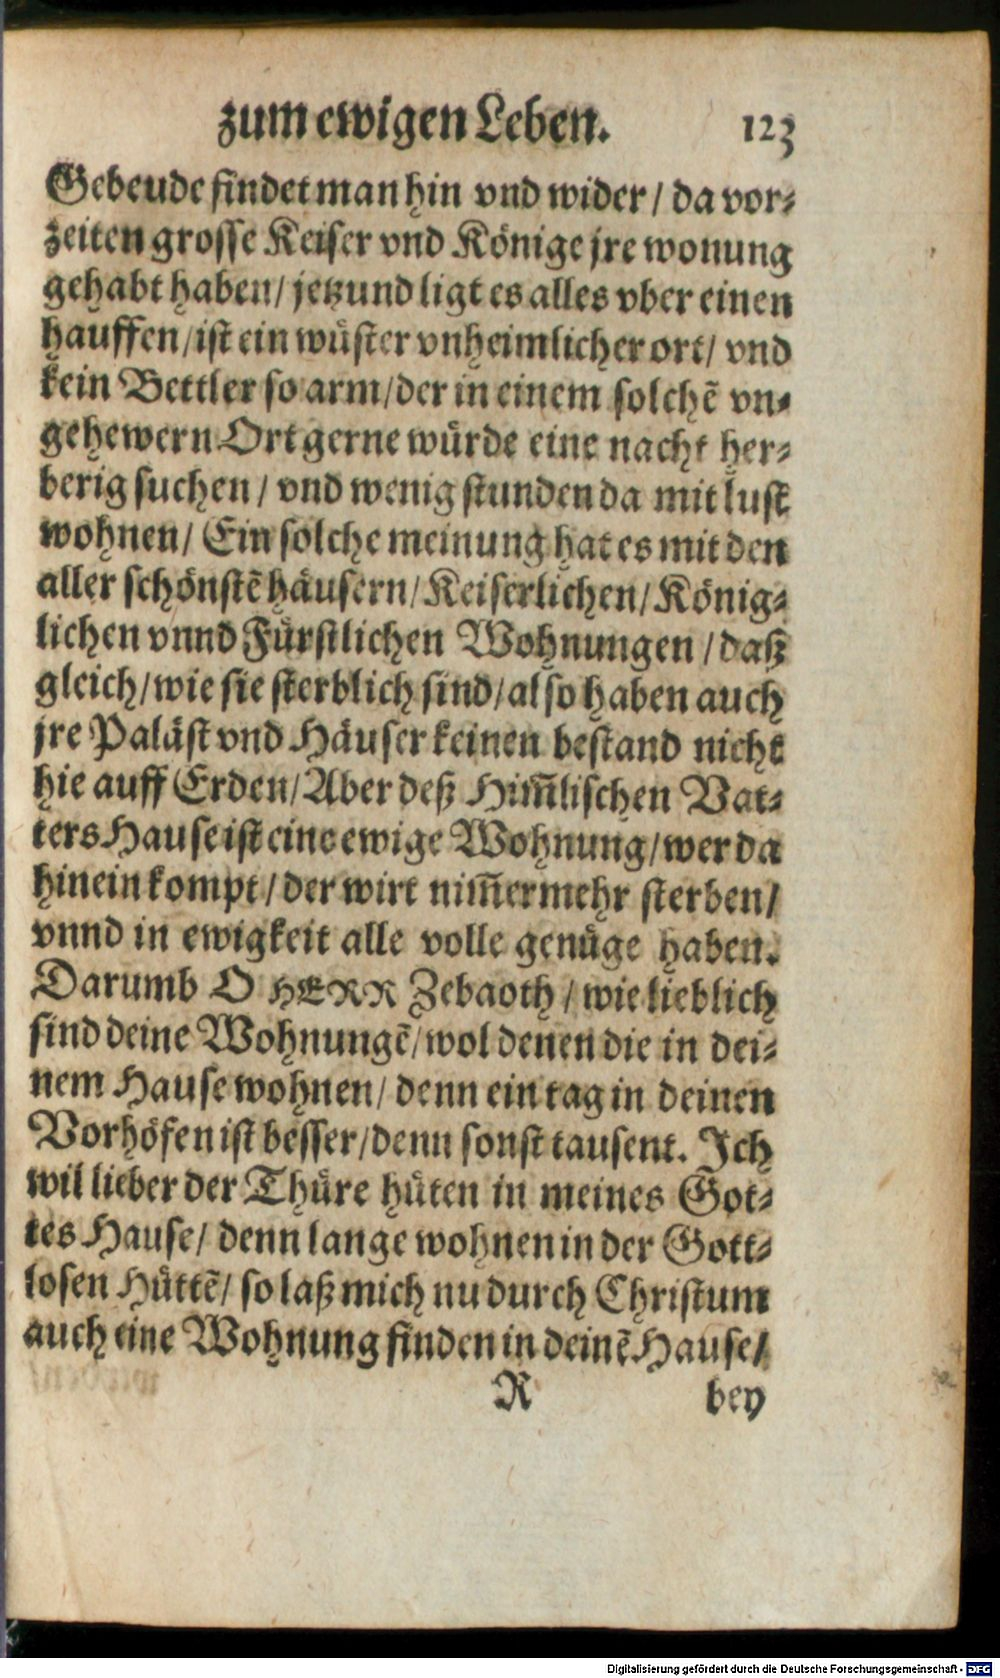 zum ewigen Leben. 123
Gebeude findet man hin vnd wider / da vor-
zeiten grosse Keiser vnd Könige jre wonung
gehabt haben / jetzund ligt es alles vber einen
hauffen / ist ein wüster vnheimlicher ort / vnd
kein Bettler so arm / der in einem solchẽ vn-
gehewern Ort gerne würde eine nacht her-
berig suchen / vnd wenig stunden da mit lust
wohnen / Ein solche meinung hat es mit den
aller schönstẽ häusern / Keiserlichen / König-
lichen vnnd Fürstlichen Wohnungen / daß
gleich / wie sie sterblich sind / also haben auch
jre Paläst vnd Häuser keinen bestand nicht
hie auff Erden / Aber deß Him̃lischen Vat-
ters Hause ist eine ewige Wohnung / wer da
hinein kompt / der wirt nim̃ermehr sterben /
vnnd in ewigkeit alle volle genüge haben.
Darumb O HERR Zebaoth / wie lieblich
sind deine Wohnungẽ / wol denen die in dei-
nem Hause wohnen / denn ein tag in deinen
Vorhöfen ist besser / denn sonst tausent. Ich
wil lieber der Thüre hüten in meines Got-
tes Hause / denn lange wohnen in der Gott-
losen Hüttẽ / so laß mich nu durch Christum
auch eine Wohnung finden in deinẽ Hause /
R bey
Digitalisierung gefördert durch die Deutsche Forschungsgemeinschaft - DFG